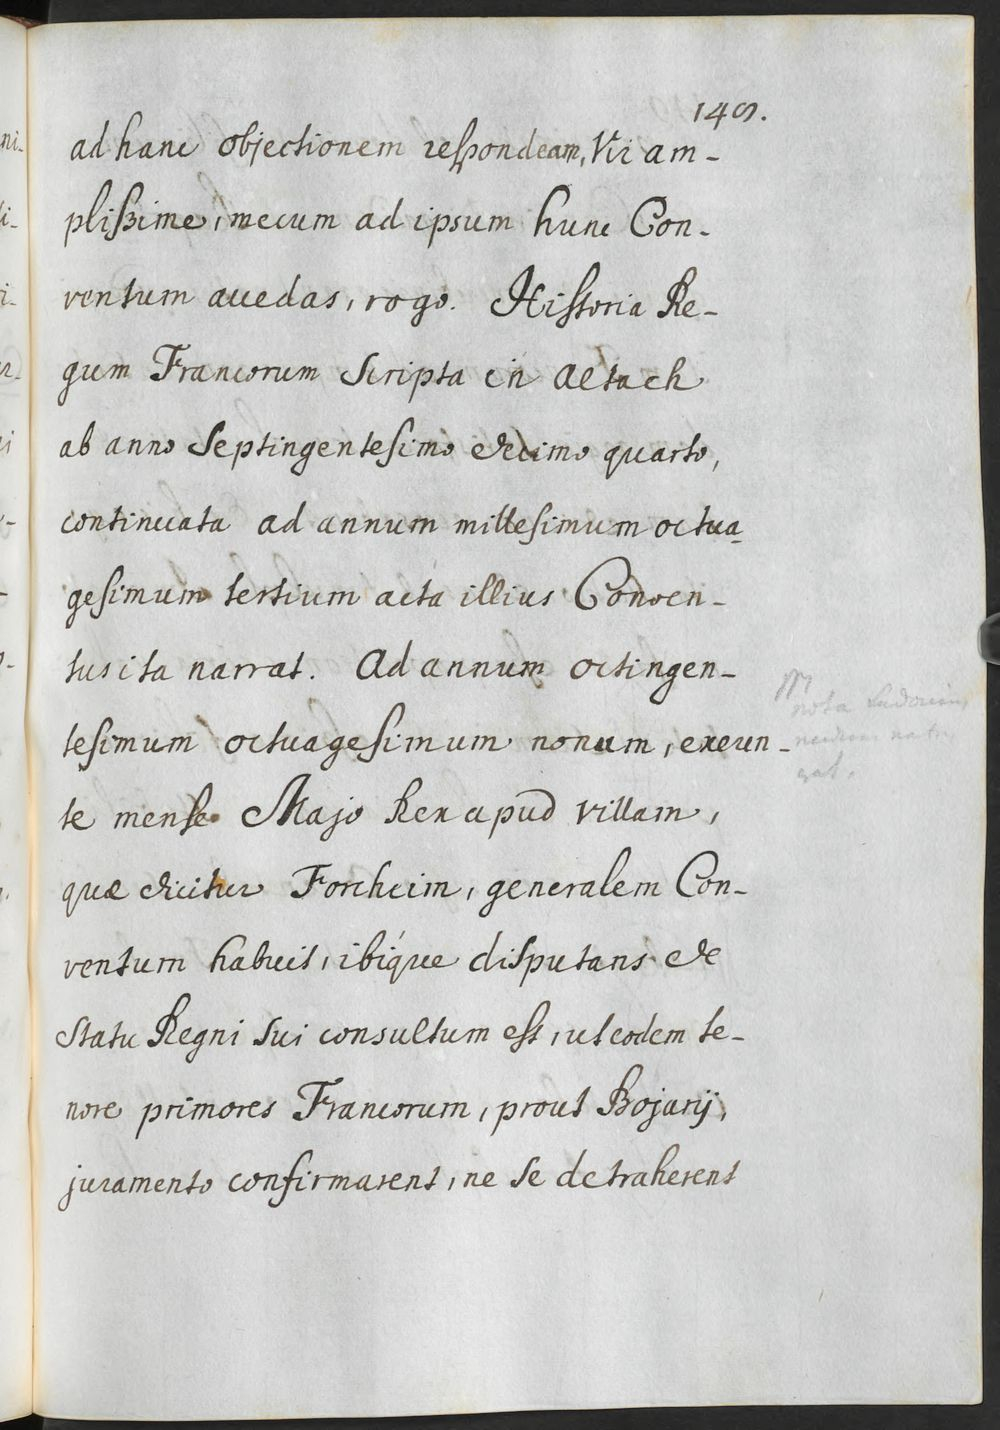 149.
ad hanc objectionem respondeam, Vir am-
plißime, mecum ad ipsum hunc Con-
ventum accedas, rogo. Historia Re-
gum Francorum scripta in Altach
ab anno septingentesimo decimo quarto,
continuata ad annum millesimum octua-
gesimum tertium acta illius Conven-
tus ita narrat. Ad annum octingen-
tesimum octuagesimum nonum, exeun-
te mense Majo Rex apud villam,
quæ dicitur Forcheim, generalem Con-
ventum habuit, ibíque disputans de
statu Regni sui consultum est, ut eodem te-
nore primores Francorum, prout Bojarij,
juramento confirmarent, ne se detraherent
nota